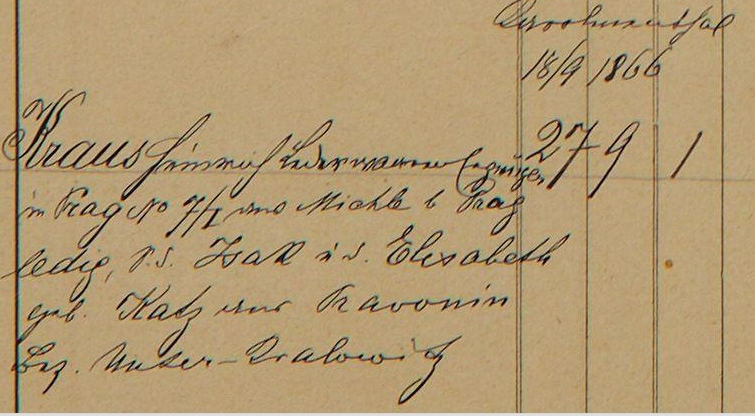 18/9 1866
Kraus Heinrich Lederwaren Erzeuger 27 9 1
in Prag No 7/I aus Michle b Prag
ledig, S. d. Isak u d. Elisabeth
geb. Katz aus Kavonin
Bez. Unter-Kralowitz